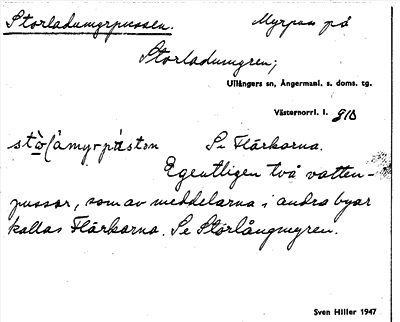 Storladumyrpussen. Myrpuss på
Storladumyren;
Ullångers sn, Ångermanl. s. doms. tg.
Västernorrl. l. 910
Se Flärkarna.
Egentligen två vatten-
pussar, som av meddelarna i andra byar
kallas Flärkarna. Se Storlångmyren.
Sven Hiller 1947